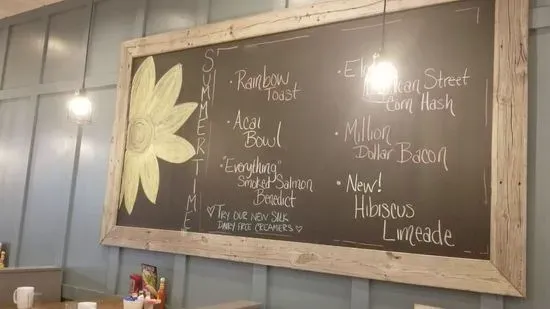 SUMMERTIME
• Rainbow
Toast
• Acai
Bowl
• "Everything"
Smoked Salmon
Benedict
♡ TRY OUR NEW SILK
DAIRY FREE CREAMERS ♡
Street
Corn Hash
• Million
Dollar Bacon
• New!
Hibiscus
Limeade